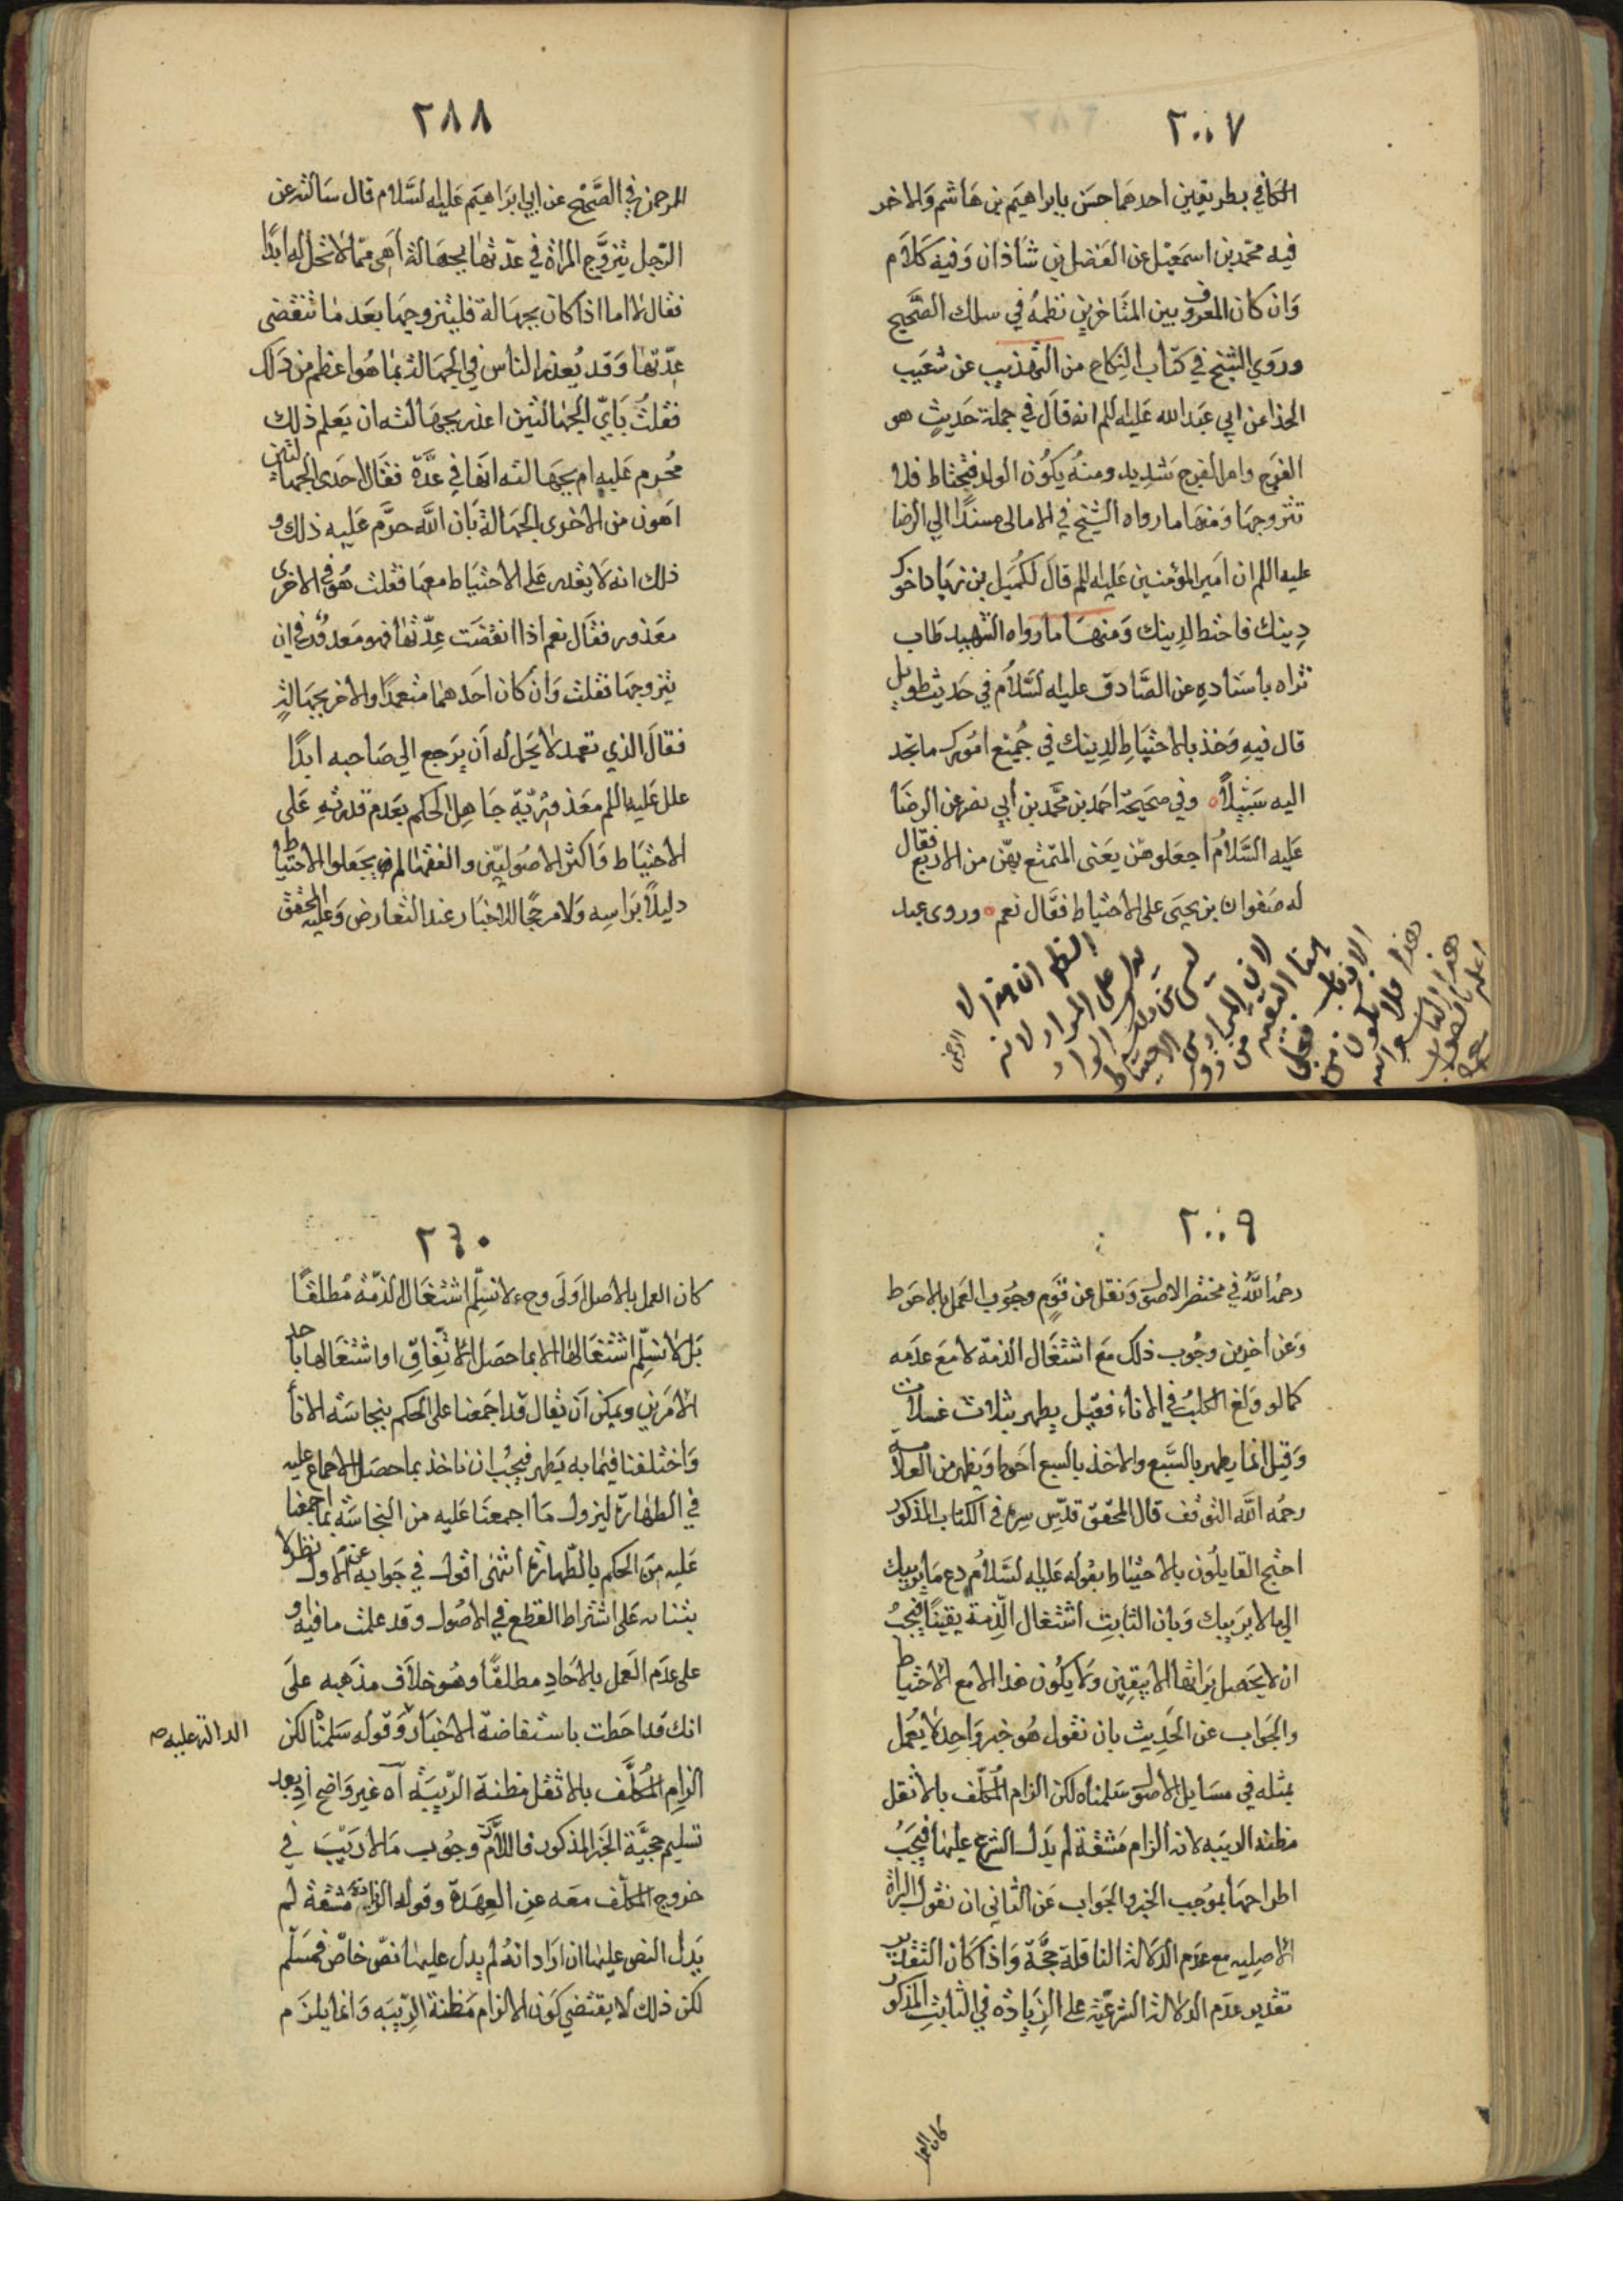 ٢٠٠٧
الكافي بطريقين احدهما حسن بابراهيم بن هاشم والاخر
فيه محمد بن اسمعيل عن الفضل بن شاذان وفيه كلام
وان كان المعروف بين المتاخرين نظمه في سلك الصحيح
وروي الشيخ في كتاب النكاح من التهذيب عن شعيب
الحذا عن ابي عبد الله عليه السلم انه قال في جملة حديث هو
الفرج وامر الفرج شديد ومنه يكون الولد فيحتاط فلا
تتزوجها ومنها ما رواه الشيخ في الامالي مسندا الي الرضا
عليه السلم ان امير المؤمنين عليه السلم قال لكميل بن زياد اخوك
دينك فاحتط لدينك ومنها ما رواه الشهيد طاب
ثراه باسناده عن الصادق عليه السلام في حديث طويل
قال فيه وخذ بالاحتياط لدينك في جميع امورك ما تجد
اليه سبيلا وفي صحيحة احمد بن محمد بن أبي نصر عن الرضا
عليه السلام اجعلوهن يعني المتمتع بهن من الاربع فقال
له صفوان بن يحيى على الاحتياط فقال نعم وروى عبد
٢٨٨
الرحمن في الصحيح عن ابي ابراهيم عليه السلام قال سالته عن
الرجل يتزوج المراة في عدتها بجهالة أهي مما لا تحل له ابدا
فقال لا اما اذا كان بجهالة فليتزوجها بعد ما تنقضى
عدتها وقد يعذر الناس في الجهالة بما هو اعظم من ذلك
فقلت باي الجهالتين اعذر بجهالته ان يعلم ذلك
محرم عليه ام بجهالته انها في عدة فقال احدى الجهالتين
اهون من الاخرى الجهالة بان الله حرم عليه ذلك و
ذلك انه لا يقدر على الاحتياط معها فقلت هو في الاخرى
معذور فقال نعم اذا انقضت عدتها فهو معذور في ان
يتزوجها فقلت وان كان احدهما متعمدا والاخر بجهالة
فقال الذي تعمد لا يحل له أن يرجع الي صاحبه ابدا
علل عليه السلم معذورية جاهل الحكم بعدم قدرته على
الاحتياط واكثر الاصوليين والفقهاء لم يجعلوا الاحتياط
دليلا براسه ولا مرجحا للاخبار عند التعارض وعليه المحقق
٢٠٠٩
رحمه الله في مختصر الاصول ونقل عن قوم وجوب العمل بالاحوط
وعن اخرين وجوب ذلك مع اشتغال الذمة لا مع عدمه
كما لو ولغ الكلب في الاناء فقيل يطهر بثلاث غسلات
وقيل انما يطهر بالسبع والاخذ بالسبع احوط ويظهر من العلامة
رحمه الله التوقف قال المحقق قدس سره في الكتاب المذكور
احتج القايلون بالاحتياط بقوله عليه السلام دع ما يريبك
الي ما لا يريبك وبان الثابت اشتغال الذمة يقينا فيجب
ان لا يحصل براتها الا بيقين ولا يكون هذا الا مع الاحتياط
والجواب عن الحديث بان نقول هو خبر واحد لا يعمل
بمثله في مسايل الاصول سلمناه لكن الزام المكلف بالاثقل
مظنه الريبه لانه الزام مشقة لم يدل الشرع عليها فيجب
اطراحها بموجب الخبر والجواب عن الثاني ان نقول البراة
الاصليه مع عدم الدلالة الناقلة حجة واذا كان التقدير
تقدير عدم الدلالة الشرعية على الزيادة في الثابت المذكور
كان العمل
٢٦٠
كان العمل بالاصل اولى وح لا نسلم اشتغال الذمة مطلقا
بل لا نسلم اشتغالها الا بما حصل الاتفاق او اشتغالها باحد
الامرين ويمكن ان يقال قد اجمعنا على الحكم بنجاسة الاناء
واختلفنا فيما به يطهر فيجب ان ناخذ بما حصل الاجماع عليه
في الطهارة ليزول ما أجمعنا عليه من النجاسة بما اجمعنا
عليه من الحكم بالطهارة انتهى اقول في جوابه عن الاول نظر لا
بتنائه على اشتراط القطع في الاصول وقد علمت ما فيه و
على عدم العمل بالاحاد مطلقا وهو خلاف مذهبه على
انك قد احطت باستفاضة الاخبار وقوله سلمناه لكن
الدالة عليه صح
الزام المكلف بالاثقل مظنة الريبة اه غير واضح اذ بعد
تسليم حجية الخبر المذكور فاللازم وجوب ما لا ريب في
خروج المكلف معه عن العهدة وقوله الزام مشقة لم
يدل النص عليها ان اراد انه لم يدل عليها نص خاص فمسلم
لكن ذلك لا يقتضي كون الالزام مظنة الريبه وانما يلزم